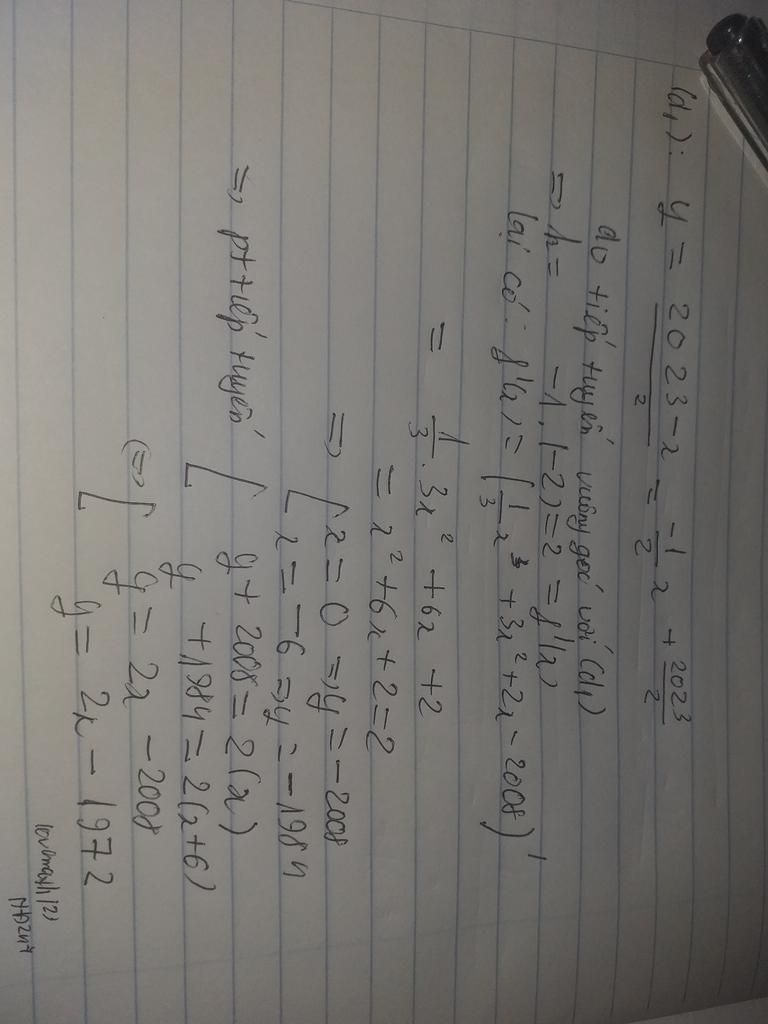 (d₁): y = \frac{2023-x}{2} = \frac{-1}{2}x + \frac{2023}{2}
do tiếp tuyến vuông góc với (d₁)
=> k = -1.(-2)=2 = f'(x)
lại có: f'(x) = (\frac{1}{3}x³ + 3x² + 2x - 2008)'
= \frac{1}{3}.3x² + 6x + 2
= x² + 6x + 2 = 2
=> [ x = 0 => y = -2008
x = -6 => y = -1984
=> pt tiếp tuyến [ y + 2008 = 2(x)
y + 1984 = 2(x+6)
(=> [ y = 2x - 2008
y = 2x - 1972